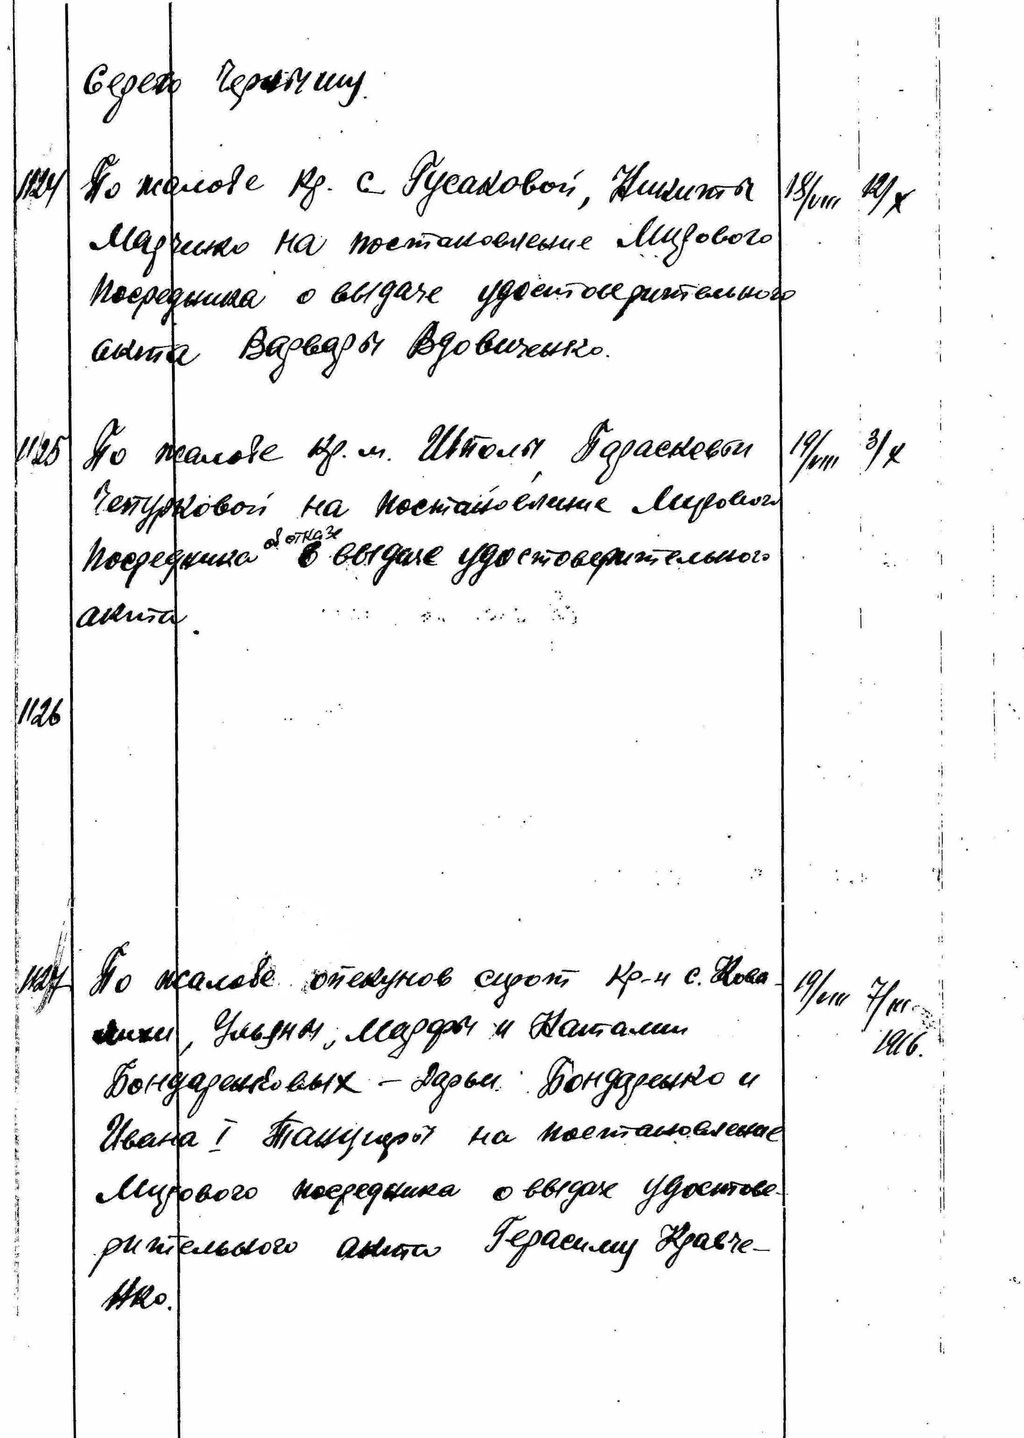 Черныш
1124 По жалобе кр. с. Гусаковой, Никиты 18/VIII 12/X
Марченко на постановление Мирового
посредника о выдаче удостоверительного
акта Варвары Вдовиченко.
1125 По жалобе кр. м. Шполы, Парасковьи 19/VIII 3/X
Чепурковой на постановление Мирового
об отказе
посредника в выдаче удостоверительного
акта.
1126
1127 По жалобе опекунов сирот кр-н с. Кова- 19/VIII 7/III
лихи, Ульяны, Марфы и Наталии 1916.
Бондаренковых – Дарьи Бондаренко и
Ивана I на постановление
Мирового посредника о выдаче удостове-
рительного акта Герасиму Кравче-
нко.